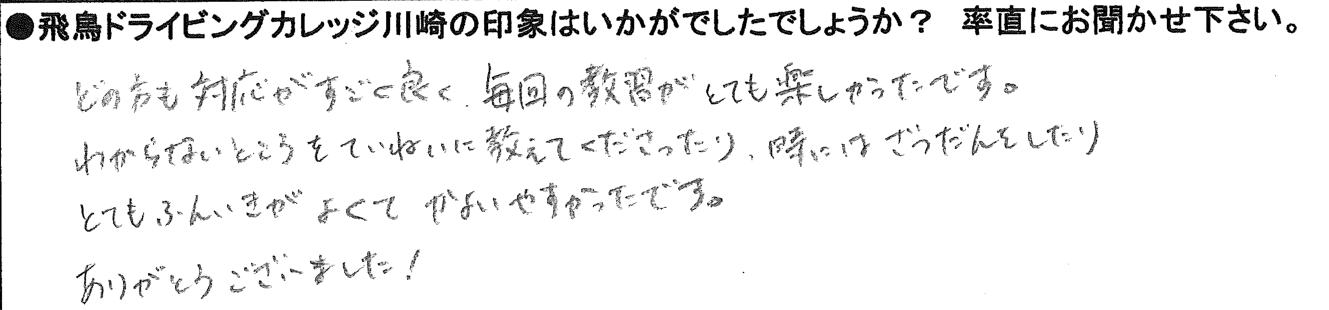 ●飛鳥ドライビングカレッジ川崎の印象はいかがでしたでしょうか？ 率直にお聞かせ下さい。
どの方も対応がすごく良く、毎回の教習がとても楽しかったです。
わからないところをていねいに教えてくださったり、時にはざつだんをしたり
とてもふんいきがよくて かよいやすかったです。
ありがとうございました！